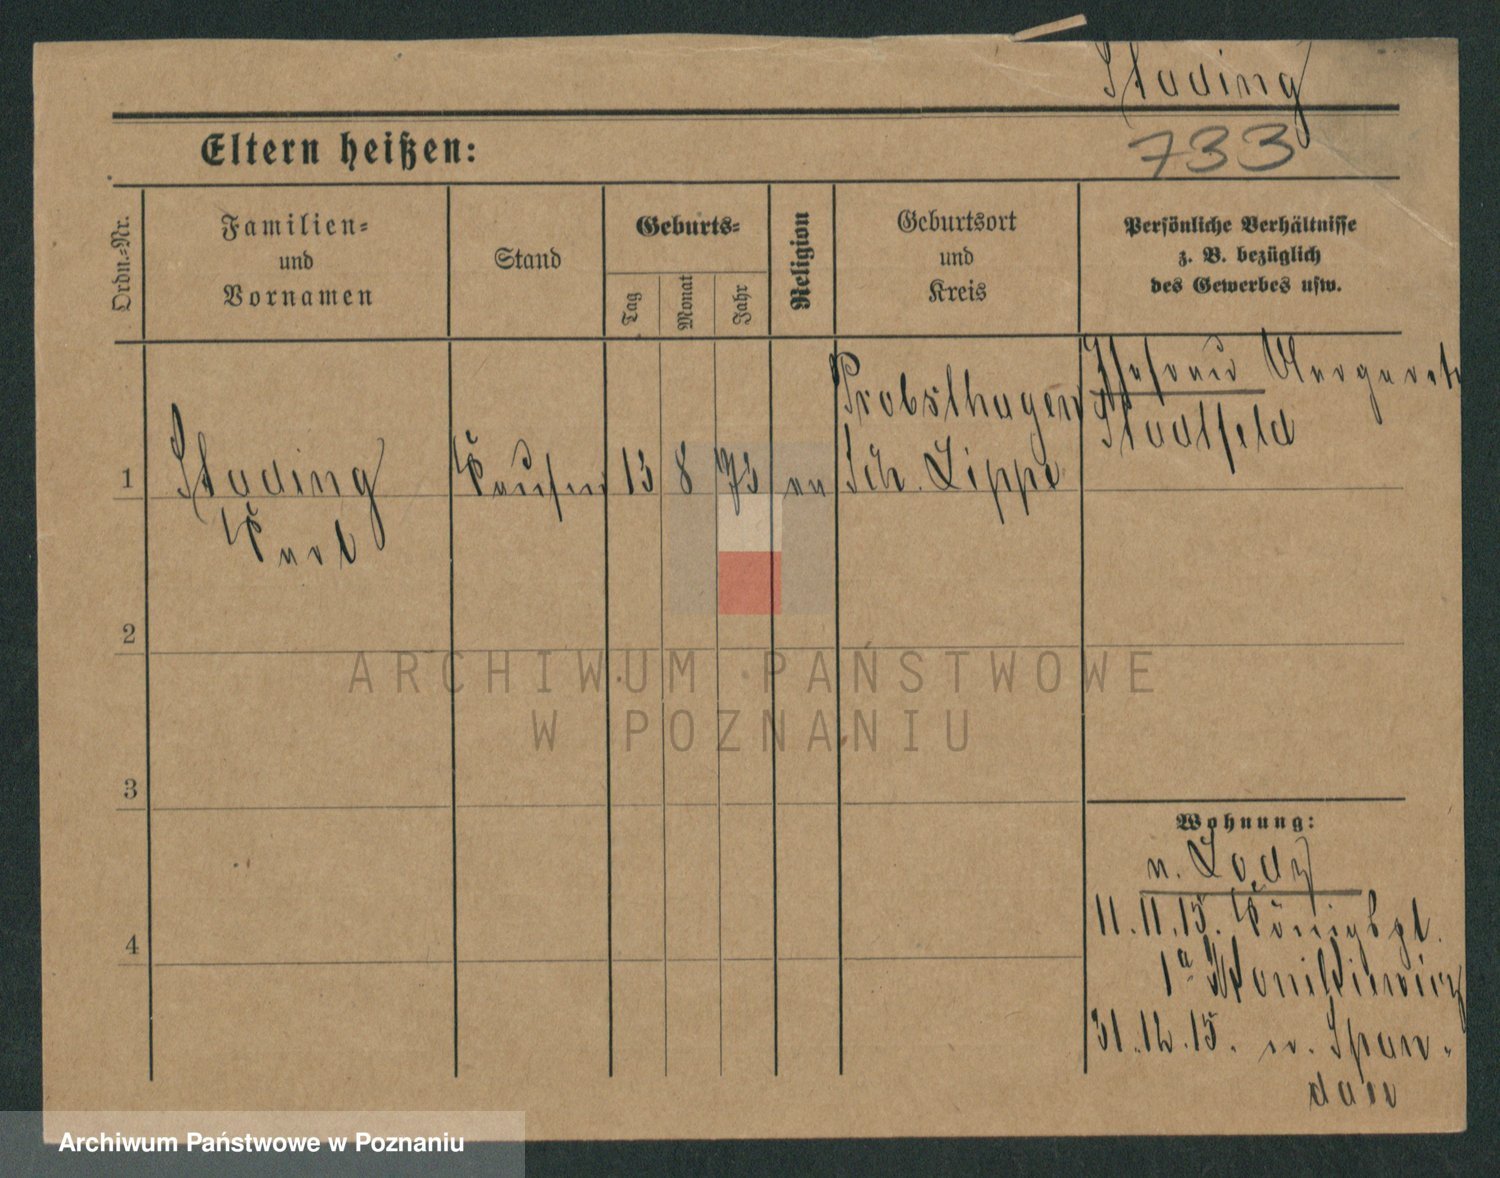 Stading
733
Eltern heißen:
Ordn.-Nr.
Familien-
und
Vornamen
Stand
Geburts-
Tag
Monat
Jahr
Religion
Geburtsort
und
Kreis
Persönliche Verhältnisse
z. B. bezüglich
des Gewerbes usw.
1
Stading
Karl
13 8 73
Probsthagen
Sch. Lippe
Stadtfeld
2
3
4
Wohnung:
n. Lodz
11.11.15. Königspl.
1a
31.12.15. n. Span-
dau
ARCHIWUM PAŃSTWOWE
W POZNANIU
Archiwum Państwowe w Poznaniu